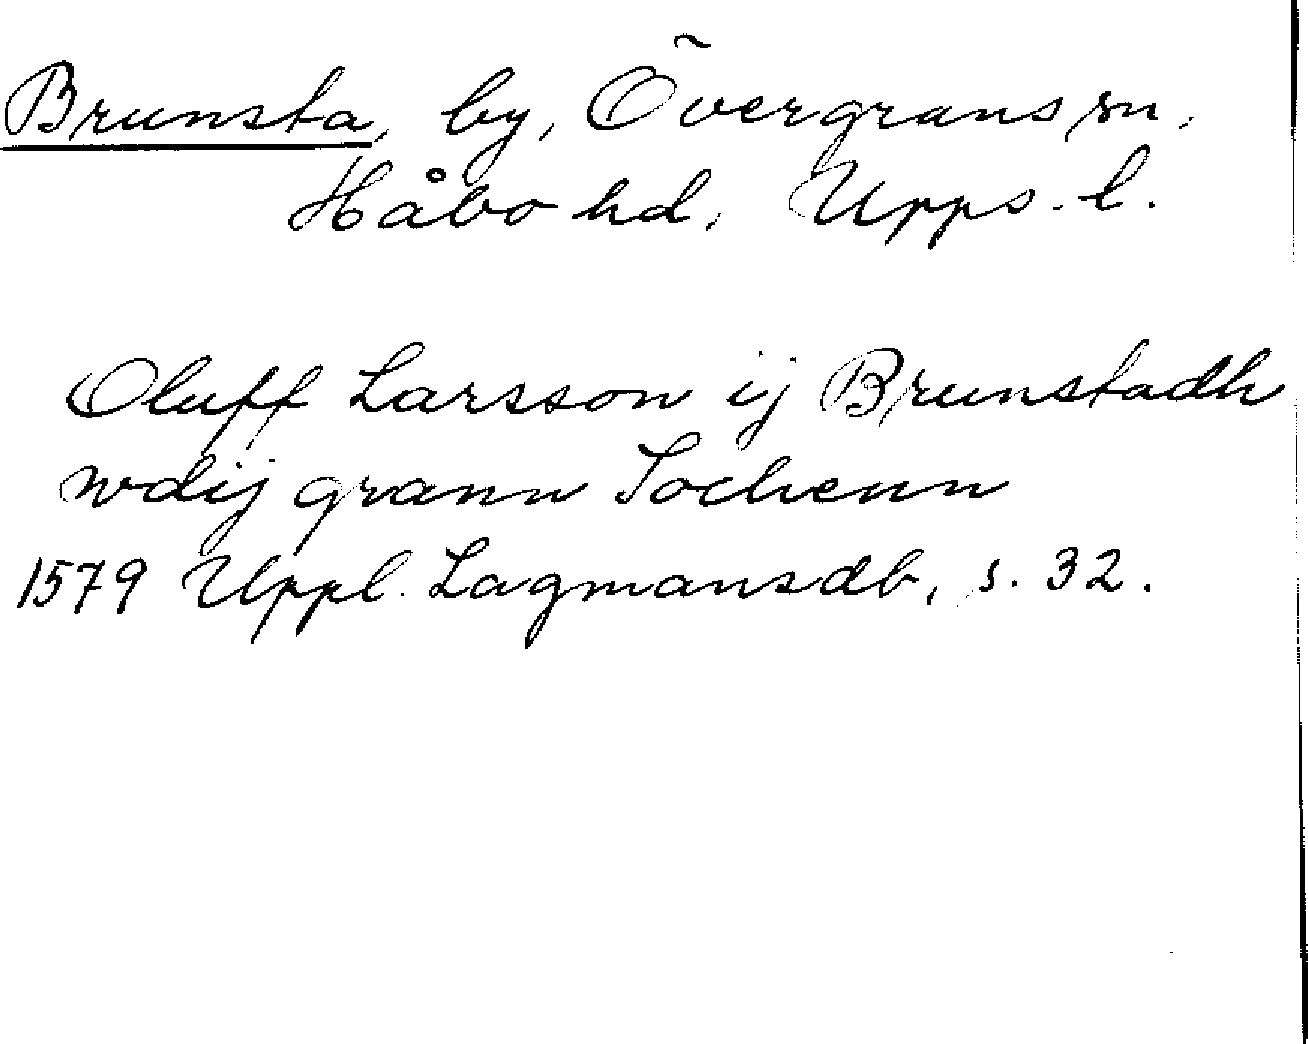 Brunsta, by, Övergrans sn,
Håbo hd, Upps. l.
Oluff Larsson ij Brunstadh
wdij grann Sochenn
1579 Uppl. Lagmansdb, s. 32.